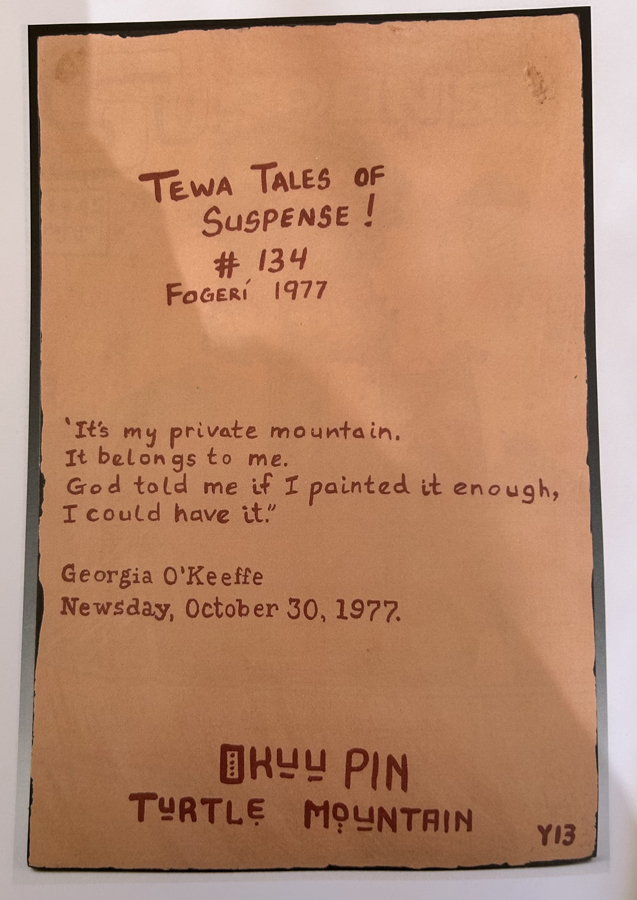 TEWA TALES OF
SUSPENSE!
# 134
FOGERÍ 1977
'It's my private mountain.
It belongs to me.
God told me if I painted it enough,
I could have it."
Georgia O'Keeffe
Newsday, October 30, 1977.
OKUU PIN
TURTLE MOUNTAIN
Y13